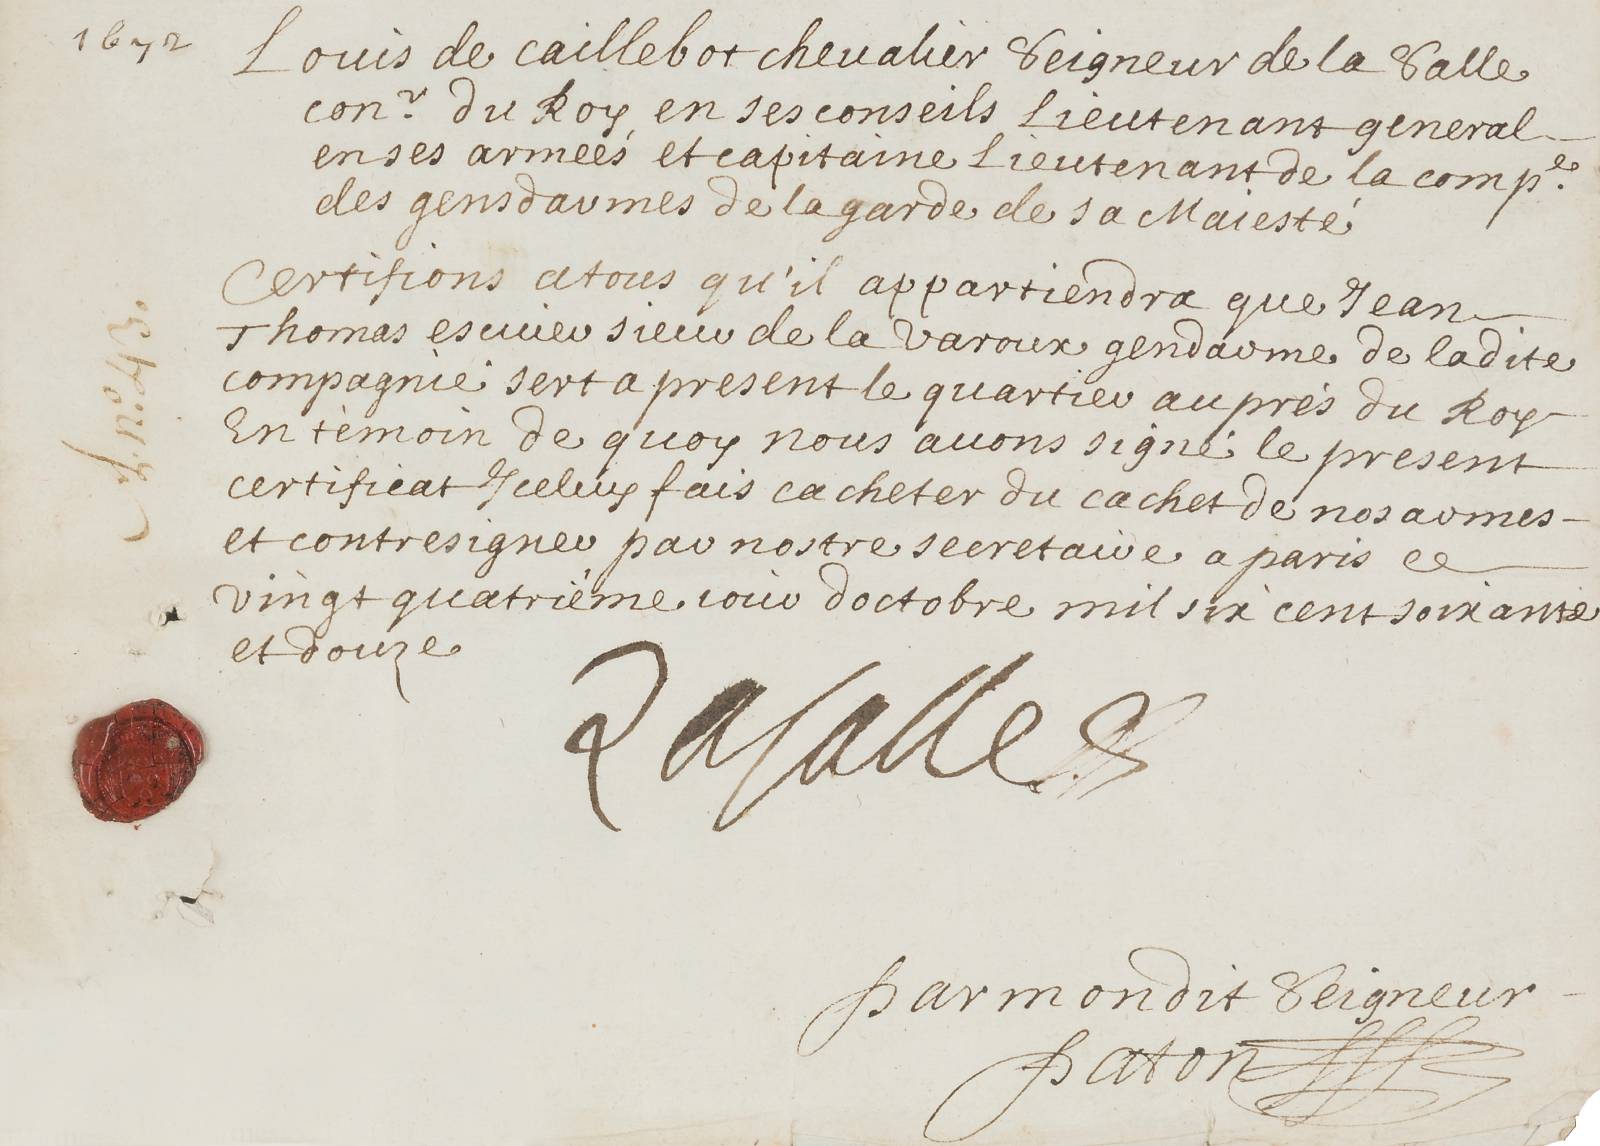 1672
Louis de Caillebot chevalier Seigneur de la Salle
con.r du Roy en ses conseils Lieutenant general
en ses armeés et capitaine Lieutenant de la comp.e
des gensdarmes de la garde de sa Maiesté
Certifions a tous qu'il appartiendra que Jean
Thomas escuier sieur de la Varoux gendarme de ladite
compagnie sert a present le quartier auprés du Roy
En témoin de quoy nous auons signé le present
certificat Iceluy fais cacheter du cachet de nos armes
et contresigner par nostre secretaire a paris ce
vingt quatriéme iour doctobre mil six cent soixante
et douze
Lasalle
par mondit Seigneur